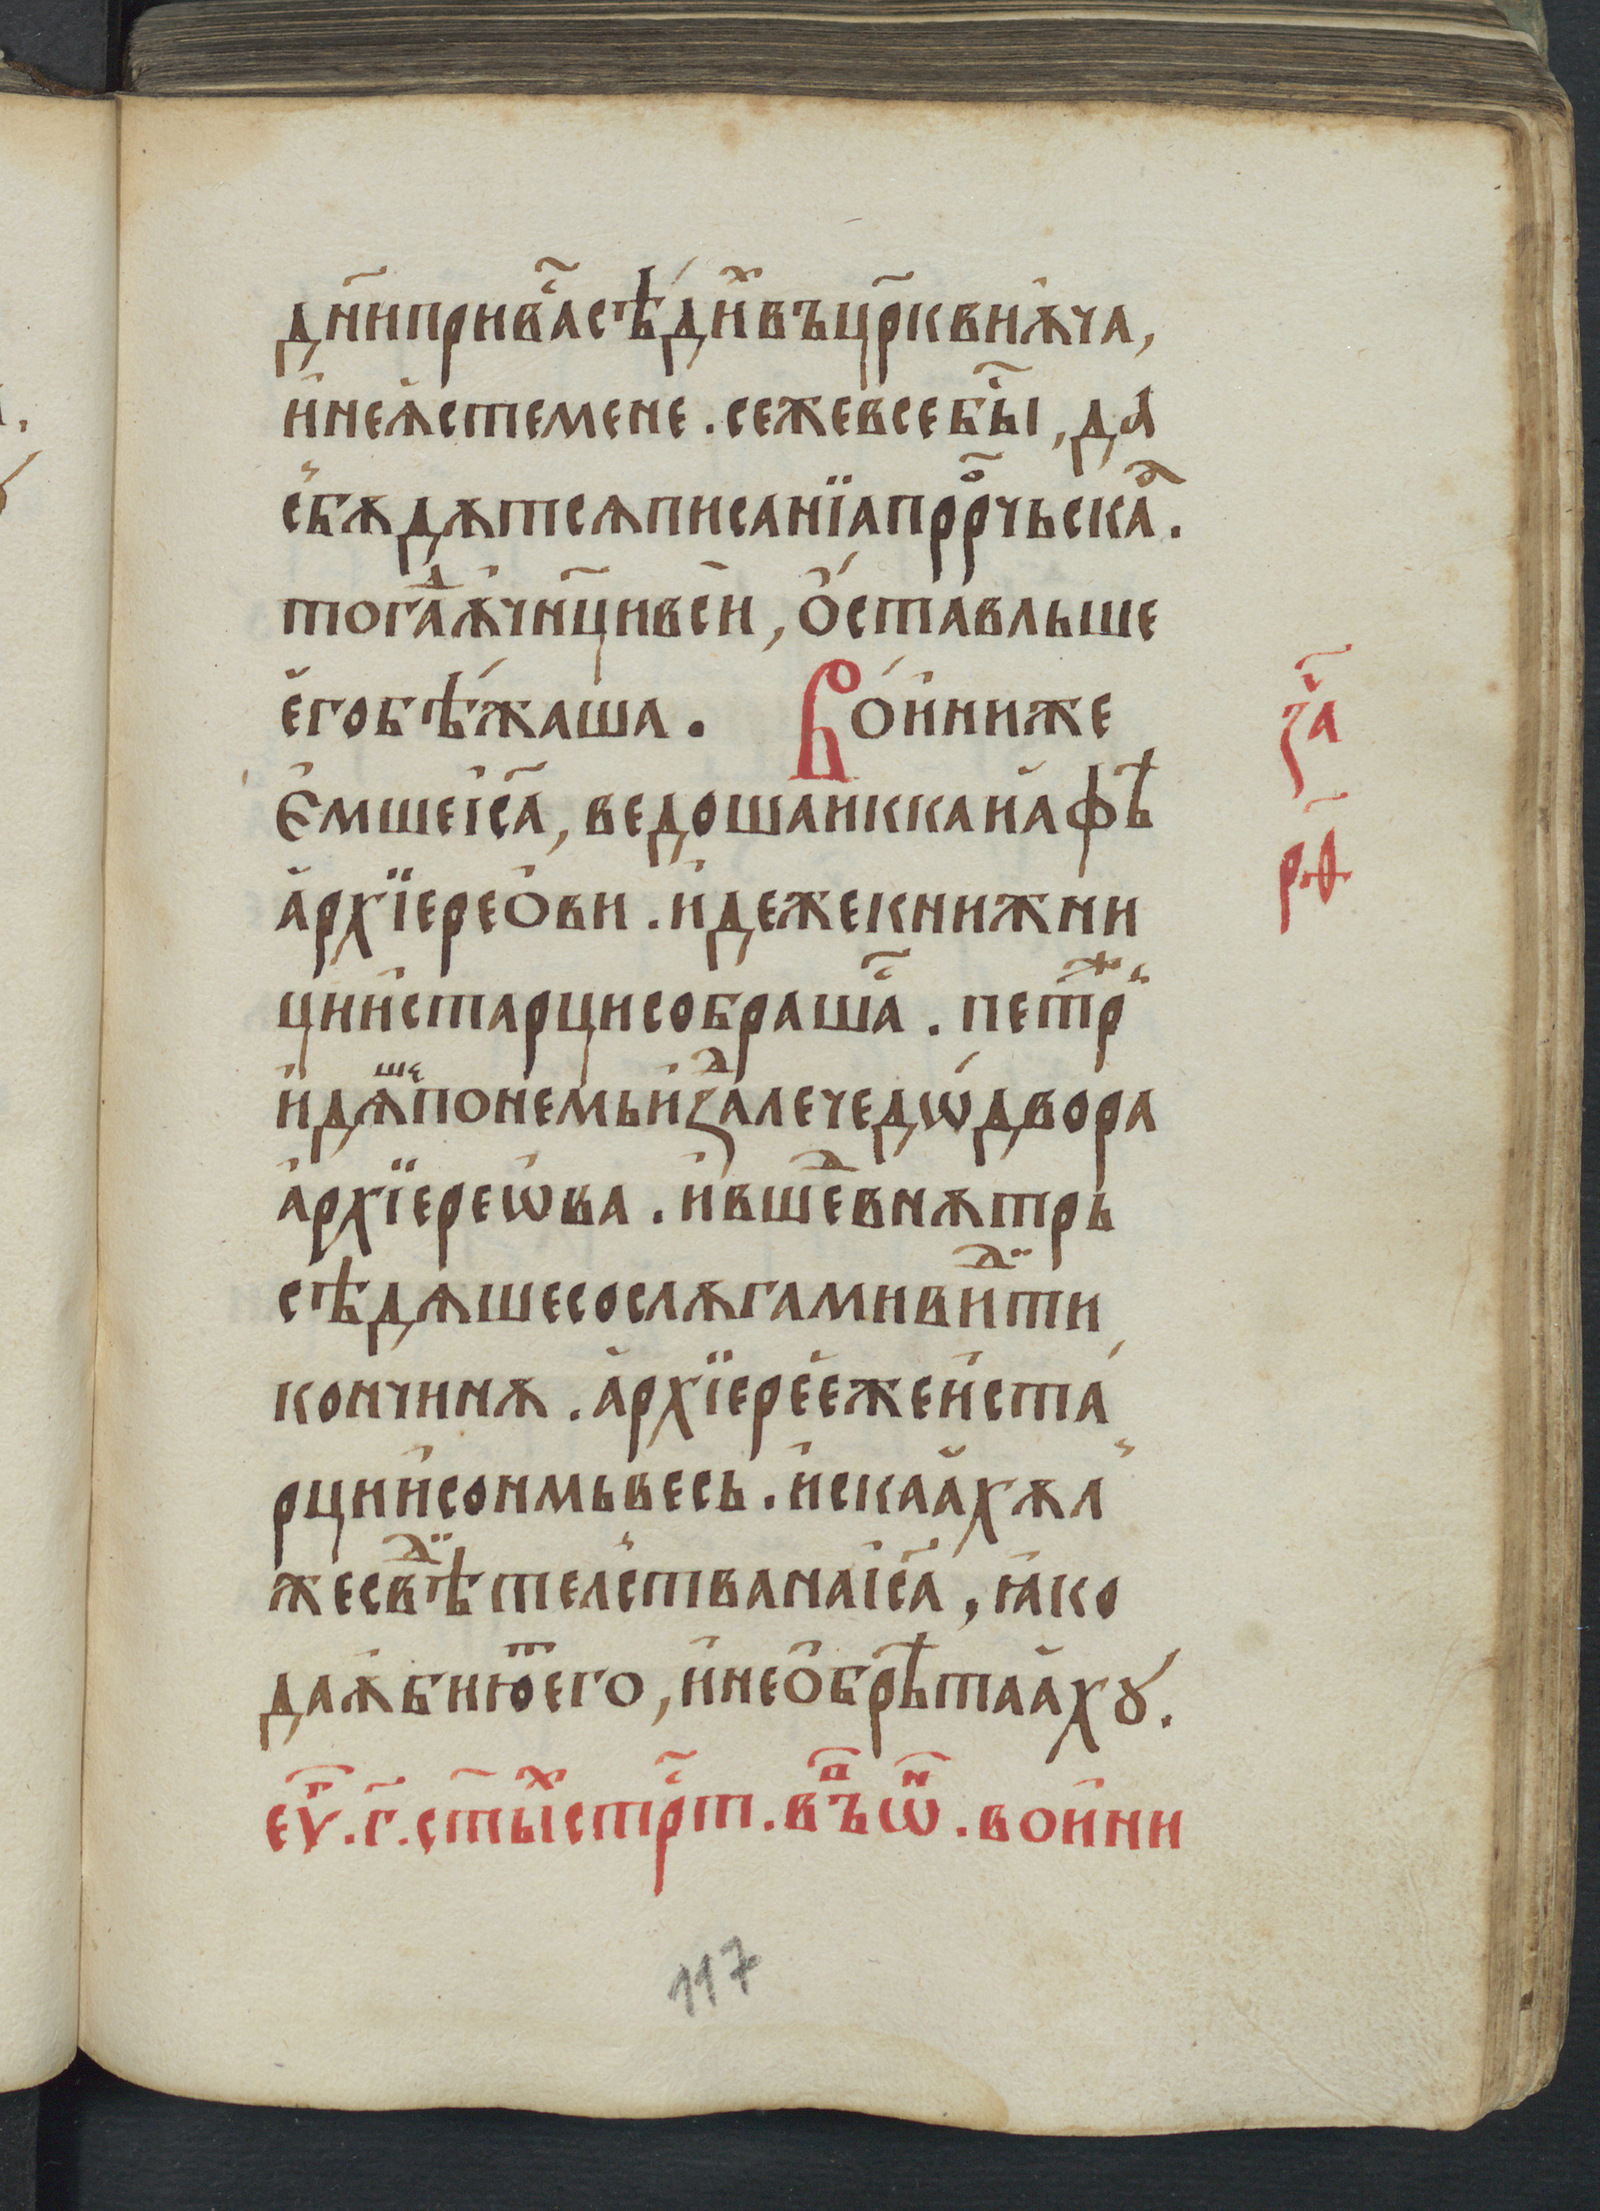 дн҃и прива́с сѣ́дѧ́х въ цр҃кви ѫча,
и҆ не ѧ҆сте мене. се же все бы́с, да
сбѫдѫтсѧ писанїа прⷪ҇рчьскаѧ.
тогда ѫ҆чн҃ци вси, ѻ҆ста́вльше
е҆го бѣжаша. Во́и҆ни же
є҆мше і҆с҃а, ведоша и к каиа҆фѣ
а҆рхїерео҆ви. и҆деже книжни
ци и҆ старци собрашасⷭ҇. петръж
и҆дѧше по немь и҆здалече дѡ двора
а҆рхїереѡ҆ва. и҆ вшед внѫтрь
сѣдѧше со слѫгами видѣти
кончинѫ. а҆рхїере́е же и҆ ста́
рци и҆ сонмь весь. и҆скаа҆хѫ л
же свѣдѣтелства на і҆с҃а, ꙗ҆ко
да ѫ҆бию́т его, и҆ не ѻ҆брѣтаа҆хꙋ.
еѵⷢ҇. г҃. ст҃ы́х стрⷭ҇т. въпⷣ ѿн. вои҆ни
заⷱ҇
р҃ѳ
117